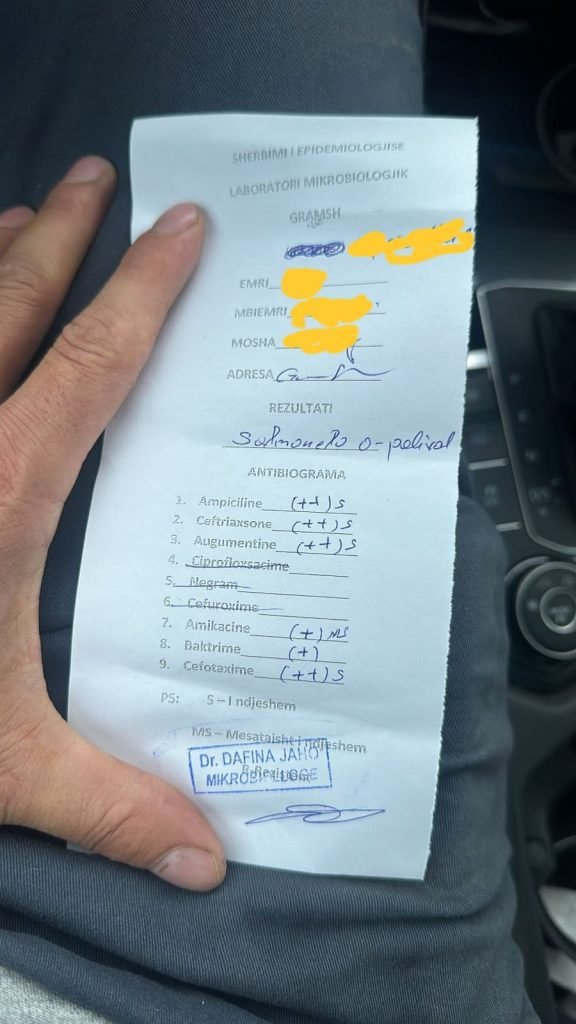 SHERBIMI I EPIDEMIOLOGJISE
LABORATORI MIKROBIOLOGJIK
GRAMSH
EMRI
MBIEMRI
MOSHA
ADRESA
REZULTATI
Salmonela o-polival
ANTIBIOGRAMA
1. Ampiciline (++) S
2. Ceftriaxsone (++) S
3. Augumentine (++) S
4. Ciprofloxsacime
5. Negram
6. Cefuroxime
7. Amikacine (+) MS
8. Baktrime (+)
9. Cefotaxime (++) S
PS: S – I ndjeshem
MS – Mesataisht i ndjeshem
Dr. DAFINA JAHO